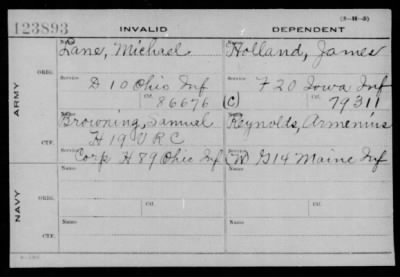 (3-H-3)
123893 INVALID DEPENDENT
Name Name
Lane, Michael Holland, James
ORIG. Service Service
D 10 Ohio Inf F 20 Iowa Inf
Ctf. Ctf.
86676 (C) 79311
ARMY
Name Name
Browning, Samuel Reynolds, Armenius
H 19 V R C
CTF. Service Service
Corp H 89 Ohio Inf (W) G 14 Maine Inf
Name Name
ORIG. Service Ctf. Service Ctf.
NAVY
Name Name
CTF. Service Service